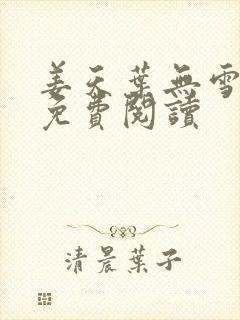 姜天葉無雪
免費閱讀
清晨葉子